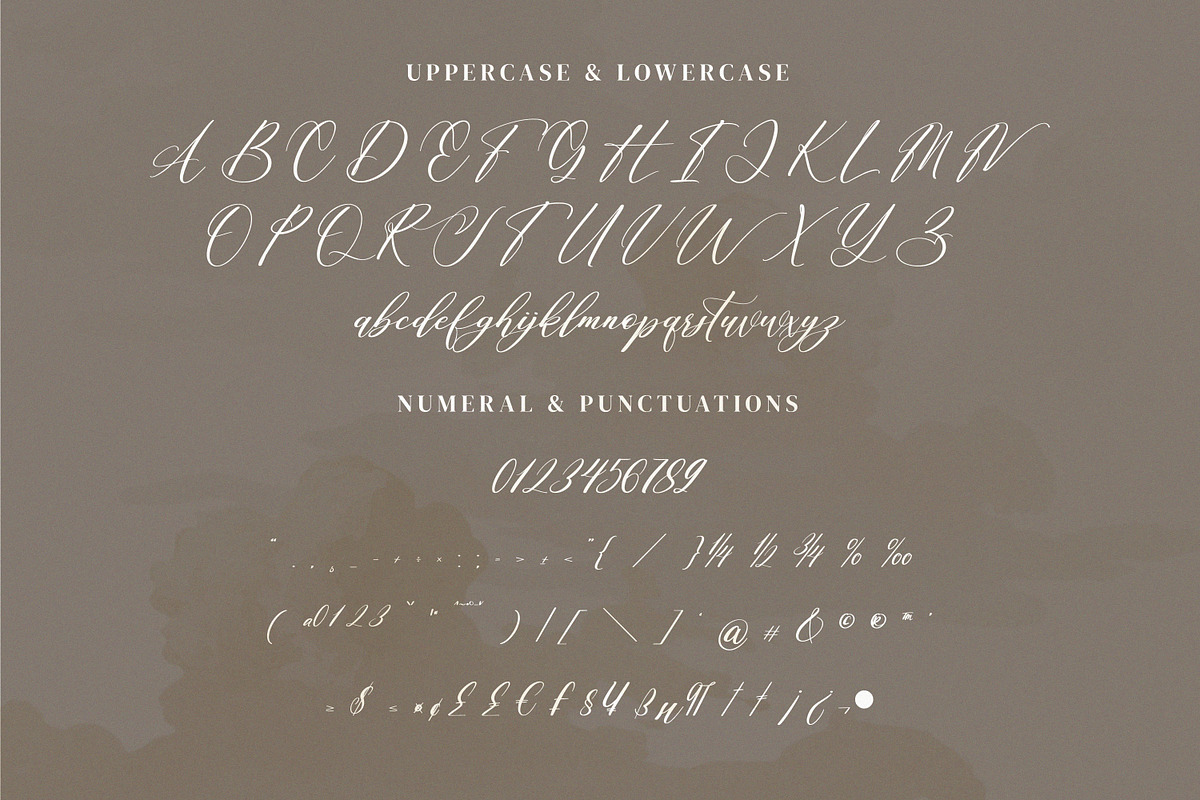 UPPERCASE & LOWERCASE
A B C D E F G H I J K L M N
O P Q R S T U V W X Y Z
abcdefghijklmnopqrstuvwxyz
NUMERAL & PUNCTUATIONS
0123456789
“ . , _ − + ÷ × : ; = > ± < ” { / } ¼ ½ ¾ % ‰
( a0123 ) | [ \ ] @ # & © ® ™
≥ $ ≤ ¤ ¢ £ £ € ƒ § ¥ ß ¶ † ‡ ¡ ¿ ¬ ●